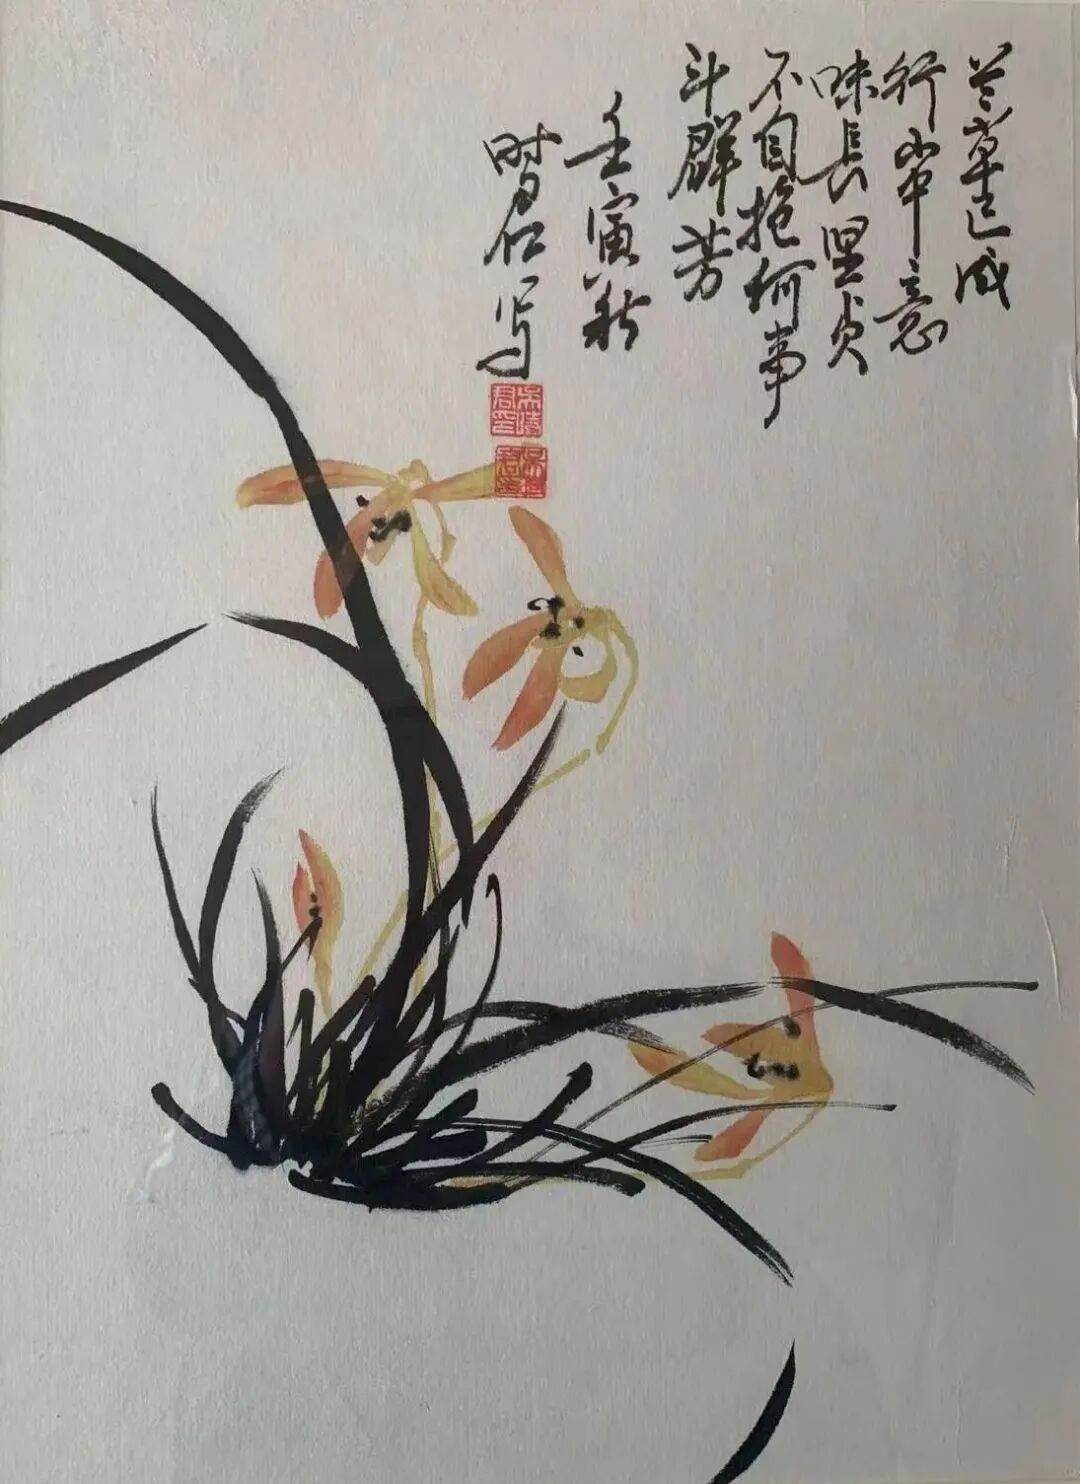 兰草已成
行山中意
味長坚贞
不自抱何事
斗群芳
壬寅秋
仁写